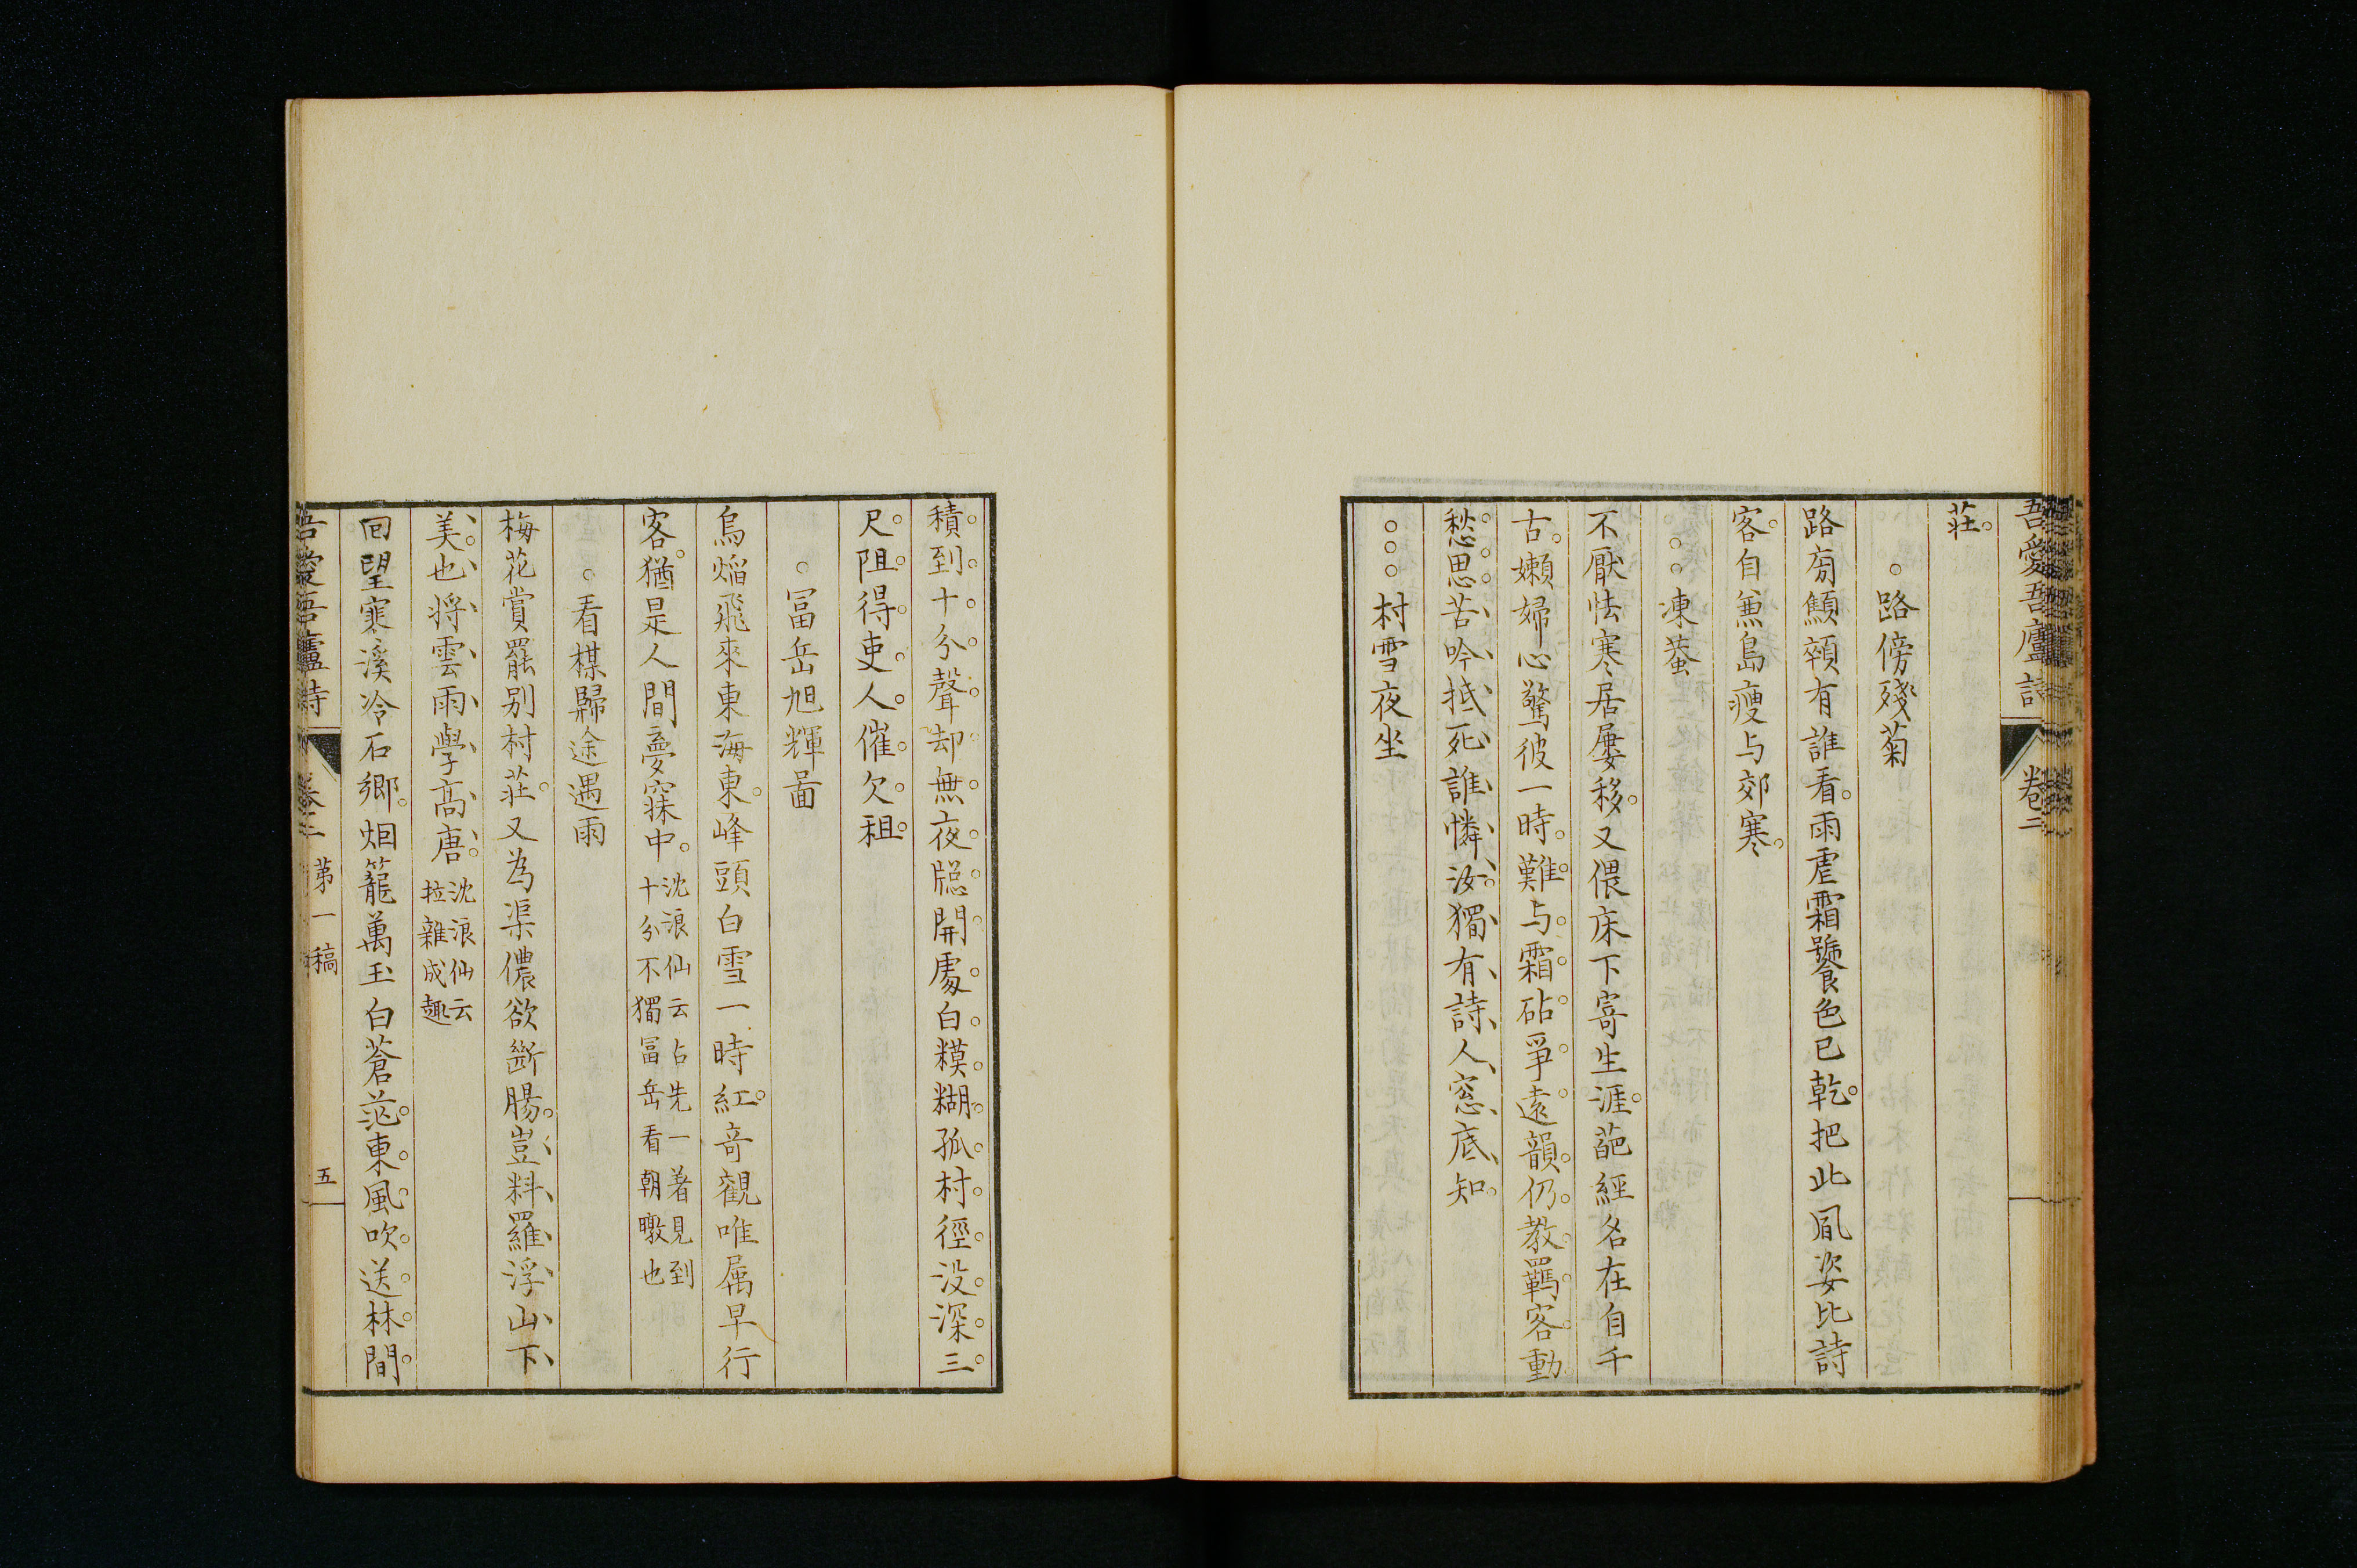 吾愛吾廬詩 卷二
莊。
○路傍殘菊
路旁顦顇有誰看。雨虐霜饕色已乾。把此風姿比詩
客。自兼島瘦与郊寒。
○○凍蛬
不厭怯寒居屢移。又偎床下寄生涯。葩經名在自千
古。嬾婦心驚彼一時。難与霜砧爭遠韻。仍教羈客動
愁思。苦吟抵死誰憐汝。獨有詩人窓底知。
○○○村雪夜坐
積到十分聲却無。夜牕開處白糢糊。孤村徑没深三
尺。阻得吏人催欠租。
○冨岳旭輝啚
烏焔飛來東海東。峰頭白雪一時紅。奇觀唯属早行
客。猶是人間夢寐中。沈浪仙云占先一著見到
十分不獨冨岳看朝暾也
○看楳歸途遇雨
梅花賞罷别村莊。又為渠儂欲斷腸。豈料羅浮山下
美。也将雲雨學高唐。沈浪仙云
拉雜成趣
回望寒溪冷石鄉。烟籠萬玉白蒼茫。東風吹送林間
吾愛吾廬詩 卷二 第一稿 五